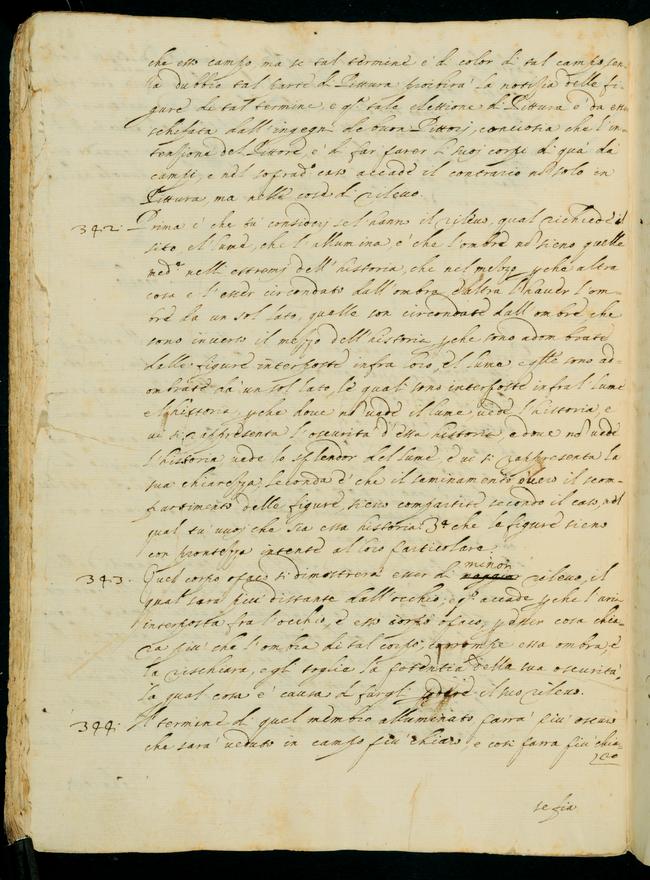 che esso campo, ma se tal termine è di color di tal campo sen-
za dubbio tal parte di Pittura prohibirà la notitia delle fi-
gure di tal termine, e q.ta tale elettione di Pittura è da esser
schifata dall'ingegni de buon Pittori, conciosia che l'in-
tensione del Pittore, è di far parer li suoi corpi di quà da
campi, e nel sopradº caso accade il contrario nõ solo in
Pittura, ma nelle cose di rilevo.
342. Prima è che tu consideri se l'hanno il rilevo, qual richiede il
sito e'l lume, che l'allumina, è che l'ombre nõ sieno quelle
med.e nelli estremi dell'historia, che nel mezzo, perche altra
cosa è l'esser circondato dall'ombre e altra l'haver l'om-
bre da un sol lato, quelle son circondate dall'ombre che
sono inverso il mezzo dell'historia, perche sono adombrate
dalle figure interposte infra loro, e'l lume e q.lle sono ad-
ombrate da un sol lato, le quali sono interposte infra'l lume
e l'historia, perche dove nõ vede il lume vede l'historia, e
vi si rappresenta l'oscurità d'essa historia e dove nõ vede
l'historia vede lo splendor del lume, e vi si rappresenta la
sua chiarezza, seconda è che il seminamento overo il scom-
partimento delle figure, sieno compartite secondo il caso, nel
qual tu vuoi che sia essa historia. 3ª che le figure sieno
con prontezza intente al loro particolare.
minor
343. Quel corpo opaco si dimostrerà esser di maggior rilevo, il
qual sarà più distante dall'occhio, e q.to accade perche l'aria
interposta fra l'occhio, è esso corpo opaco, per esser cosa chia-
ra più che l'ombra di tal corpo, corrompe essa ombra, e
la rischiara, e gli toglie la potentia della sua oscurità,
la qual cosa è causa di fargli perdere il suo rilevo.
344. Il termine di quel membro alluminato parrà più oscuro
che sarà veduto in campo più chiaro, e così parrà più chia-
ro
se sia